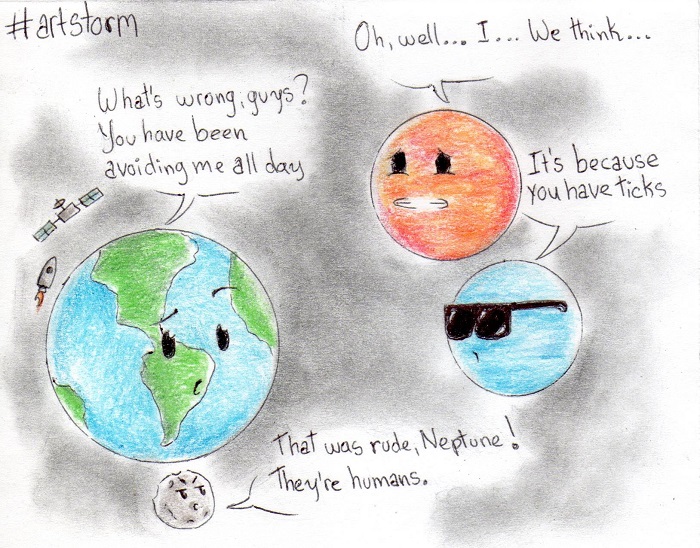 #artstorm
Oh, well... I... We think...
What's wrong, guys?
You have been
avoiding me all day
It's because
you have ticks
That was rude, Neptune!
They're humans.